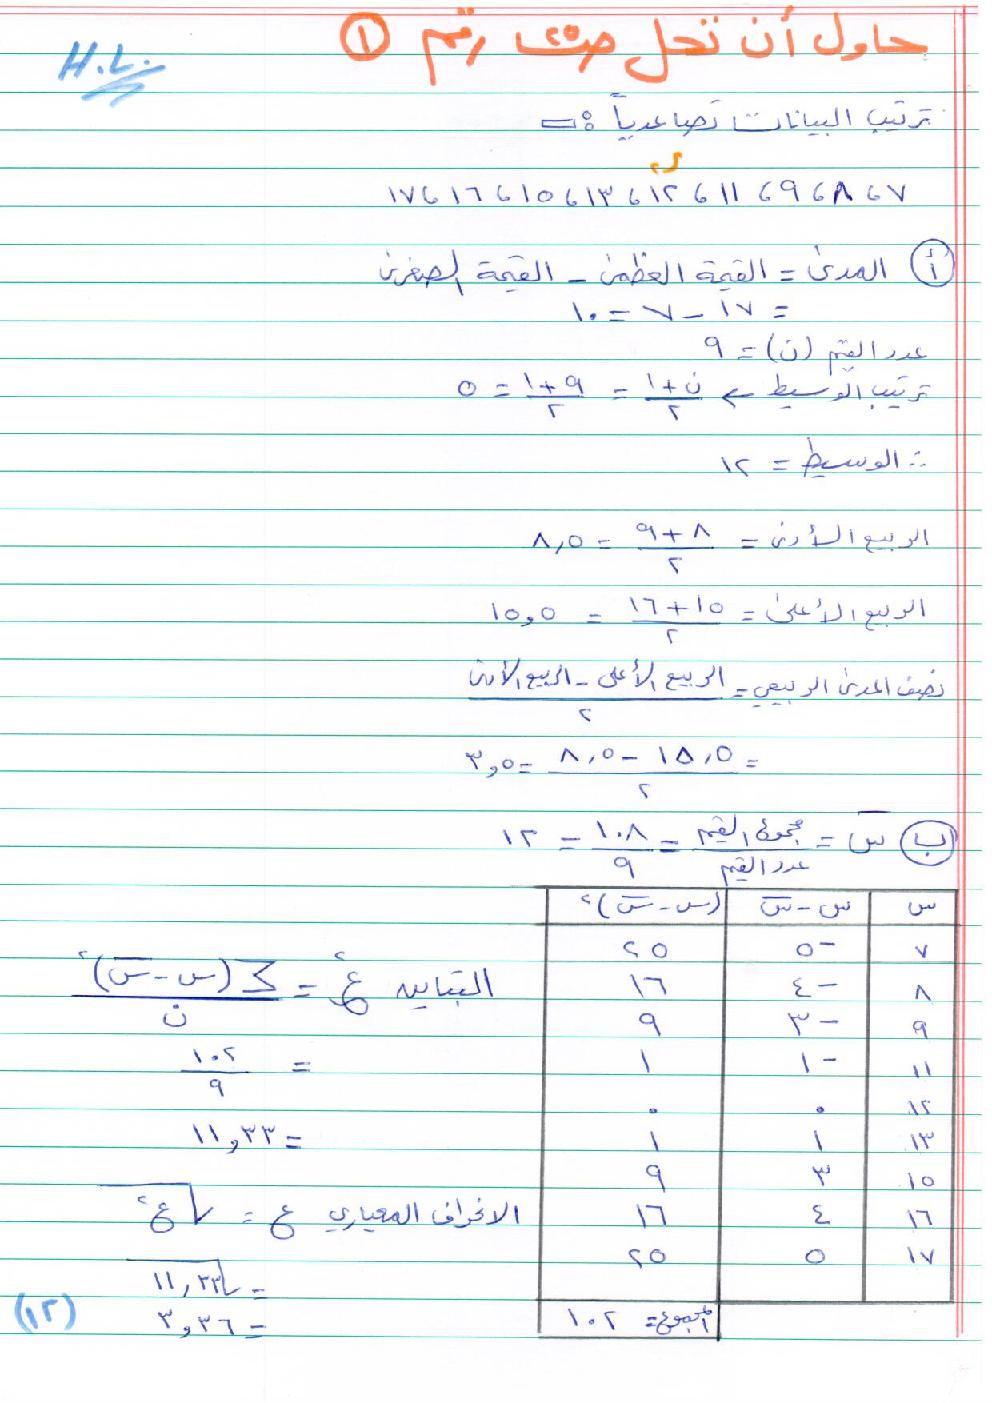 حاول أن تحل ص٢٥ رقم ①
H.L.
ترتيب البيانات تصاعدياً :-
ر
٧ ، ٨ ، ٩ ، ١١ ، ١٢ ، ١٣ ، ١٥ ، ١٦ ، ١٧
أ المدى = القيمة العظمى - القيمة الصغرى
= ١٧ - ٧ = ١٠
عدد القيم (ن) = ٩
ترتيب الوسيط ← ن+١/٢ = ٩+١/٢ = ٥
∴ الوسيط = ١٢
الربيع الأدنى = ٨+٩/٢ = ٨,٥
الربيع الأعلى = ١٥+١٦/٢ = ١٥,٥
نصف المدى الربيعي = الربيع الأعلى - الربيع الأدنى/٢
= ١٥,٥ - ٨,٥/٢ = ٣,٥
ب س̄ = مجموع القيم/عدد القيم = ١٠٨/٩ = ١٢
س | س - س̄ | (س - س̄)²
٧ | -٥ | ٢٥
٨ | -٤ | ١٦
٩ | -٣ | ٩
١١ | -١ | ١
١٢ | ٠ | ٠
١٣ | ١ | ١
١٥ | ٣ | ٩
١٦ | ٤ | ١٦
١٧ | ٥ | ٢٥
المجموع = ١٠٢
التباين ع² = ∑(س - س̄)²/ن
= ١٠٢/٩
= ١١,٣٣
الانحراف المعياري ع = √ع²
= √١١,٣٣
= ٣,٣٦
(١٢)